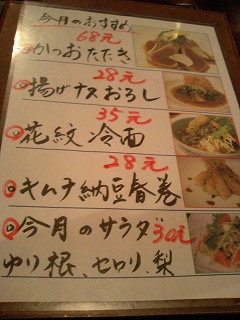 今月のおすすめ
68元
◎かつおたたき
28元
◎揚げナスおろし
35元
◎花紋冷面
28元
◎キムチ納豆春巻
◎今月のサラダ30元
ゆり根、セロリ、梨